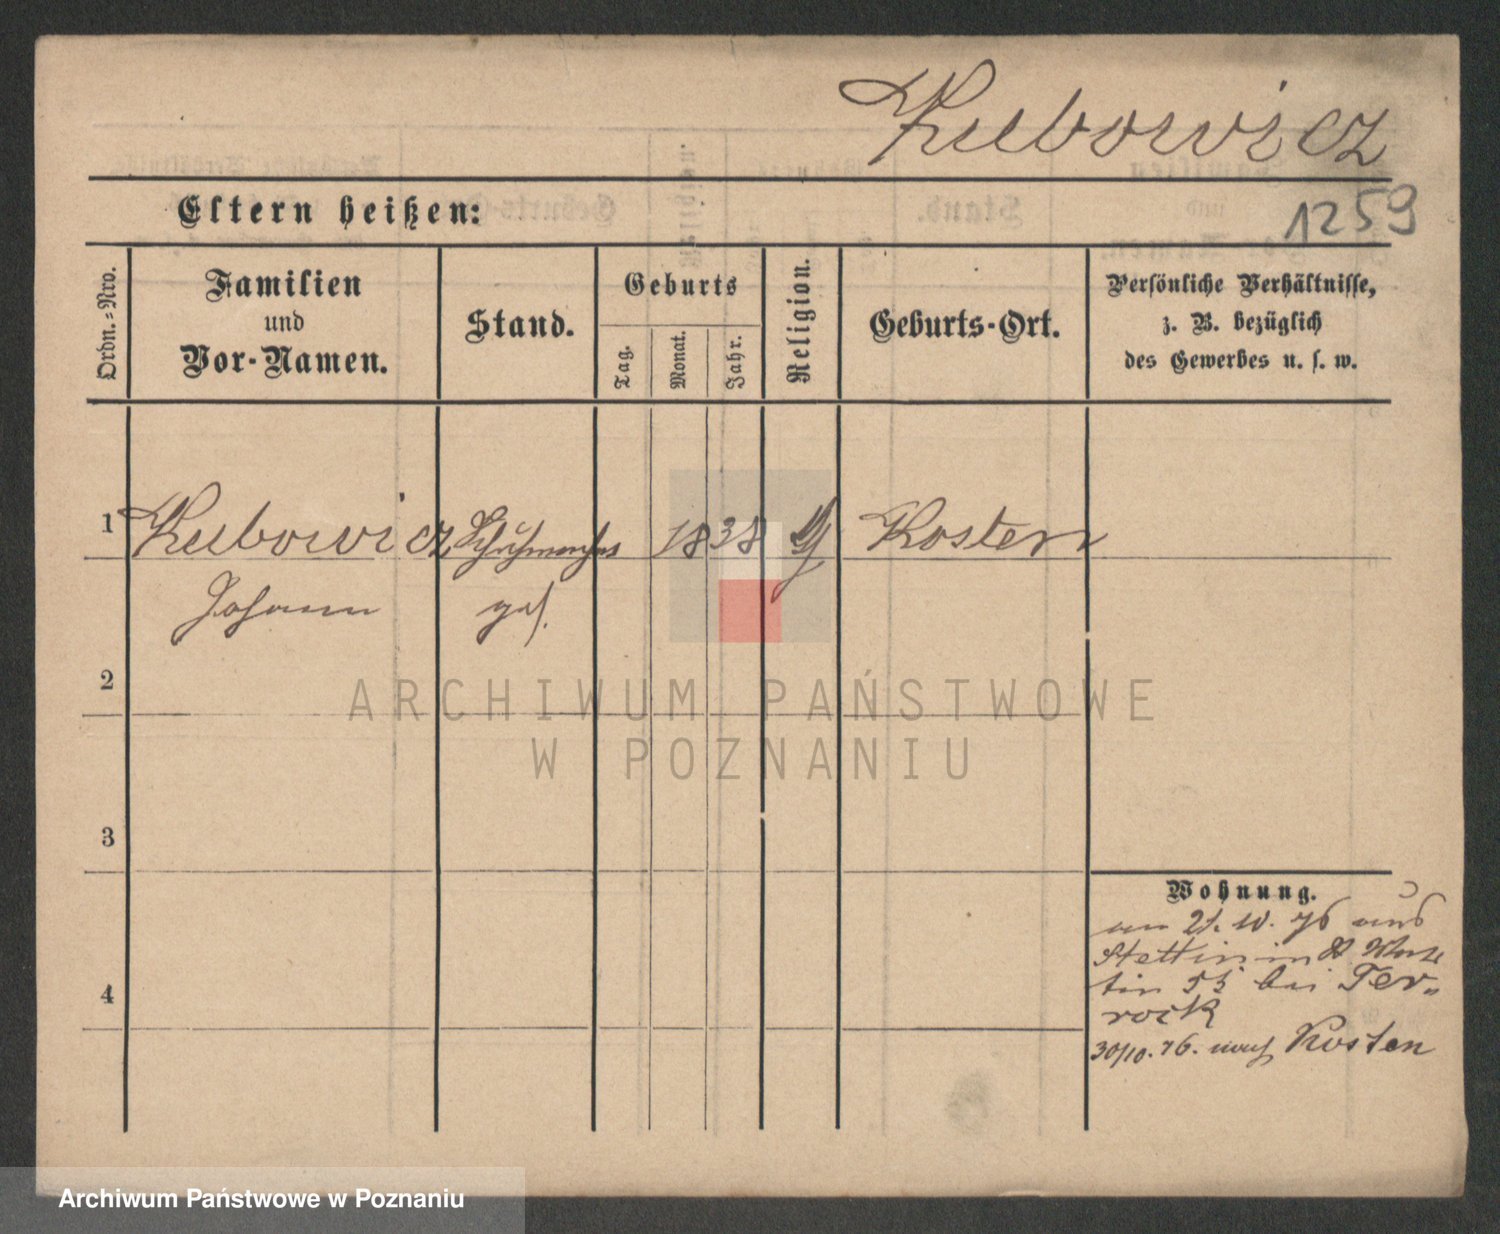 Kubowicz
1259
Eltern heißen:
Ordn.=Nro.
Familien
und
Vor-Namen.
Stand.
Geburts
Tag.
Monat.
Jahr.
Religion.
Geburts-Ort.
Persönliche Verhältnisse,
z. B. bezüglich
des Gewerbes u. s. w.
1 Kubowicz Schuhmacher 1838 Kosten
Johann ges.
2
3
4
Wohnung.
am 21. 10. 76 aus
Stettin in St
tin 53 bei Ter-
rock
30/10. 76. nach Kosten
ARCHIWUM PAŃSTWOWE
W POZNANIU
Archiwum Państwowe w Poznaniu